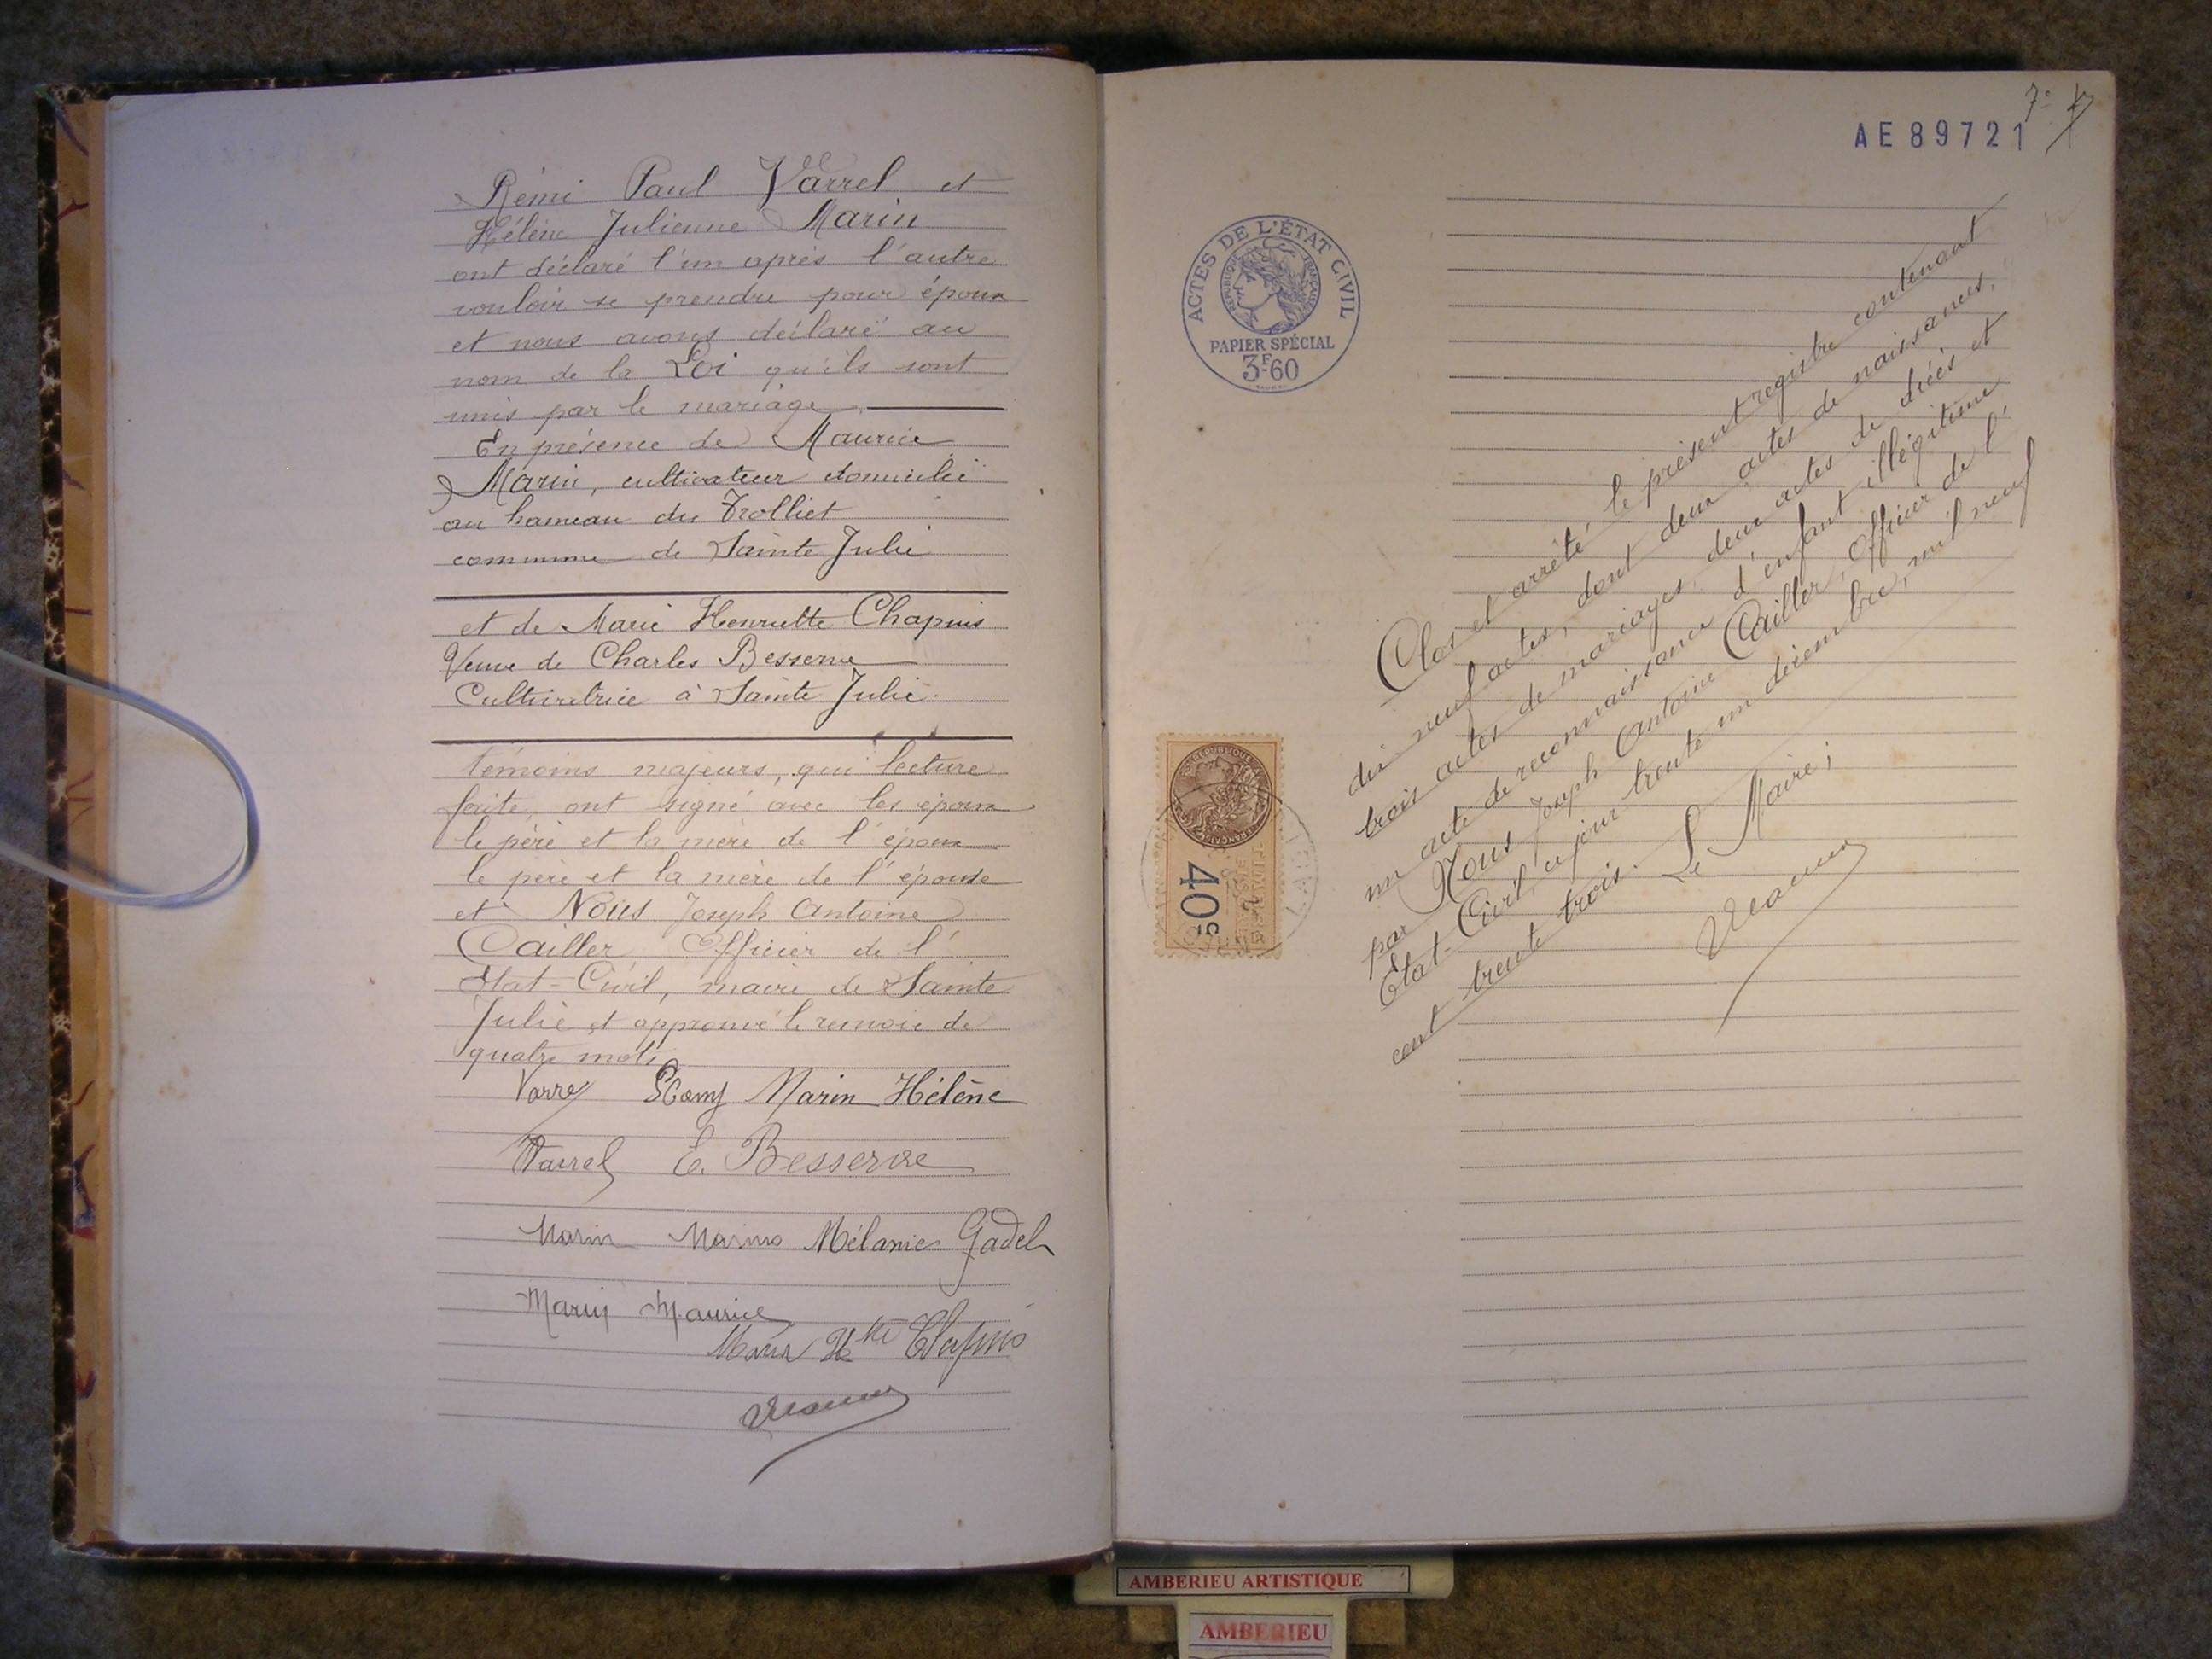 Rémi Paul Varrel et
Hélène Julienne Marin
ont déclaré l'un après l'autre
vouloir se prendre pour époux
et nous avons déclaré au
nom de la Loi qu'ils sont
unis par le mariage.
En présence de Maurice
Marin, cultivateur domicilié
au hameau du Trolliet
commune de Sainte Julie
et de Marie Henriette Chapuis
Veuve de Charles Besserve
Cultivatrice à Sainte Julie.
témoins majeurs, qui lecture
faite, ont signé avec les époux
le père et la mère de l'époux
le père et la mère de l'épouse
et Nous Joseph Antoine
Cailler, Officier de l'
Etat-Civil, maire de Sainte
Julie et approuvé le renvoi de
quatre mots
Varrel Remy Marin Hélène
Varrel E. Besserve
Marin Marius Mélanie Gadel
Marin Maurice
Marie Htte Chapuis
7e
AE89721
ACTES DE L'ÉTAT CIVIL
RÉPUBLIQUE FRANÇAISE
PAPIER SPÉCIAL
3F60
40c
Clos et arrêté le présent registre contenant
dix neuf actes, dont deux actes de naissances,
trois actes de mariages, deux actes de décès et
un acte de reconnaissance d'enfant illégitime
par Nous Joseph Antoine Cailler, Officier de l'
Etat-Civil, ce jour trente un décembre, mil neuf
cent trente trois. Le Maire;
AMBERIEU ARTISTIQUE
AMBERIEU